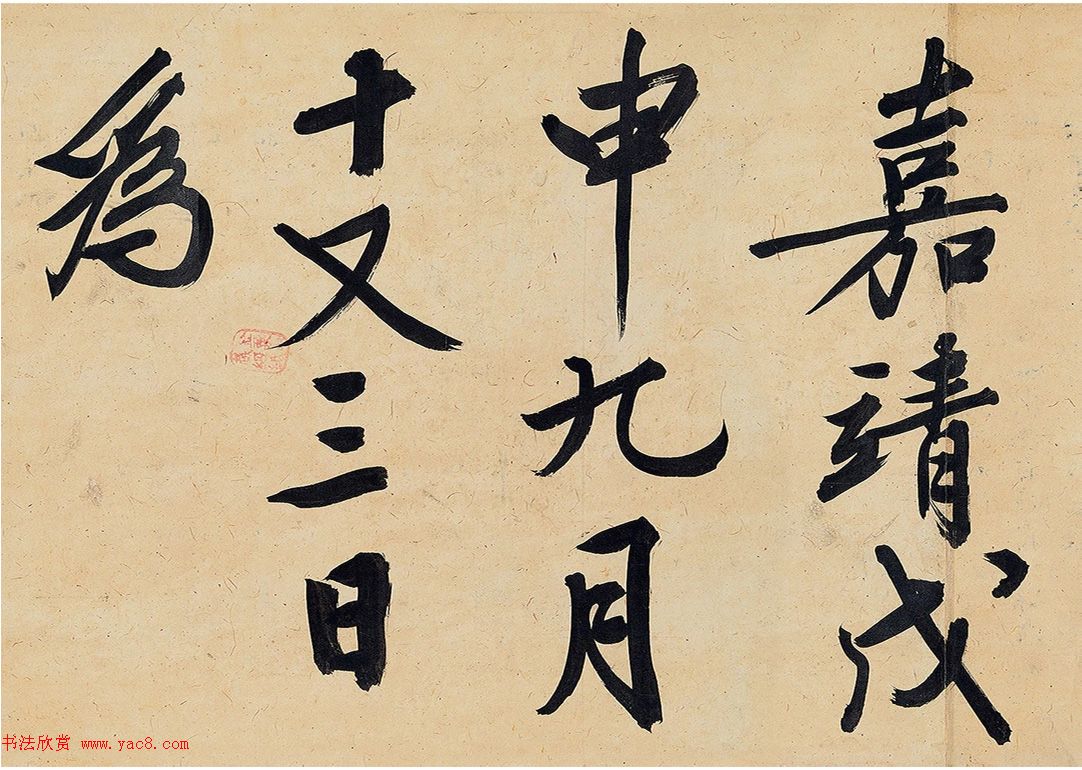 嘉靖戊
申九月
十又三日
為
书法欣赏 www.yac8.com